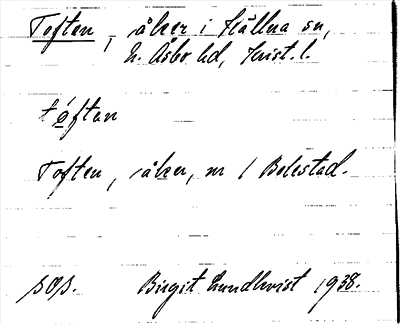 Toften, åker i Hällna sn,
N. Åsbo hd, Krist. l.
tóftan
Toften, åker, nr 1 Bolestad.
SOS. Birgit Lundkvist 1938.